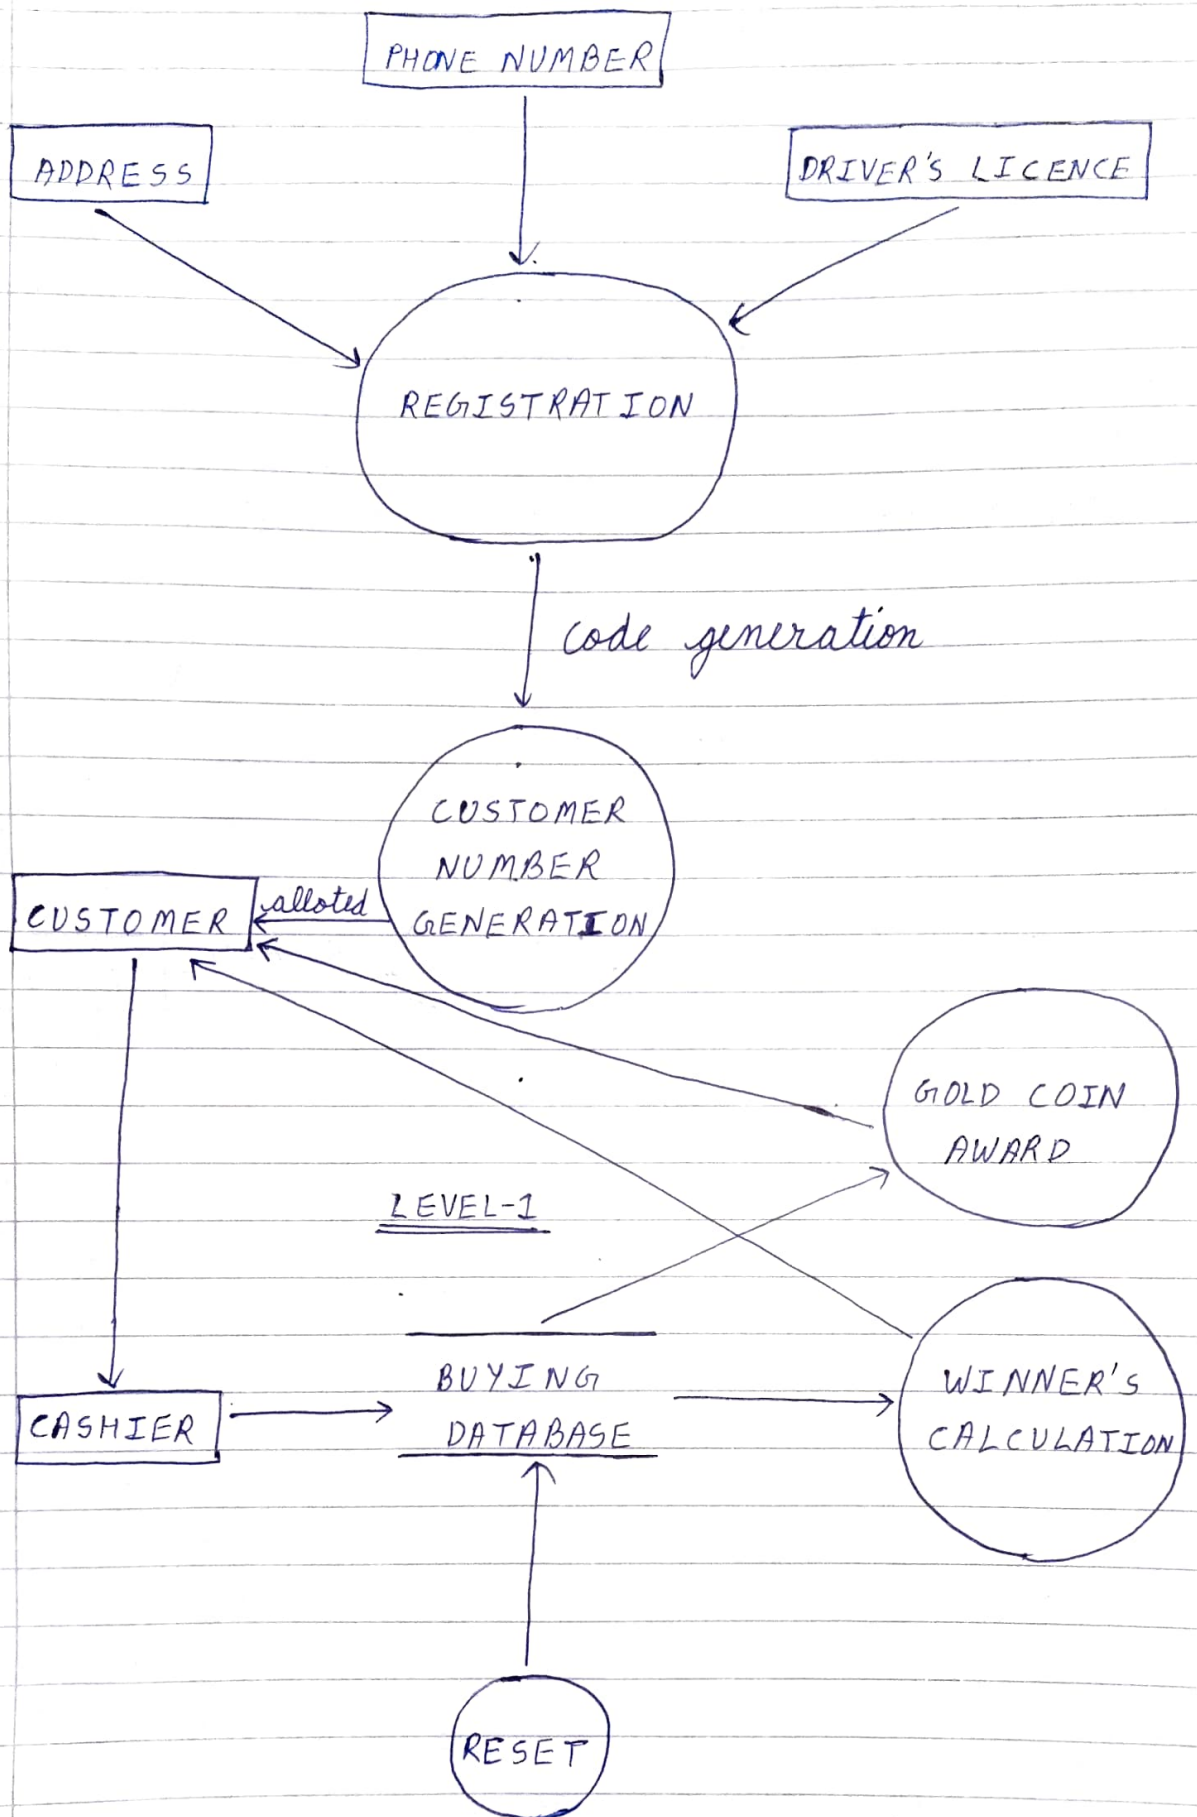 PHONE NUMBER
ADDRESS
DRIVER'S LICENCE
REGISTRATION
code generation
CUSTOMER
NUMBER
GENERATION
alloted
CUSTOMER
GOLD COIN
AWARD
LEVEL-1
BUYING
DATABASE
WINNER'S
CALCULATION
CASHIER
RESET